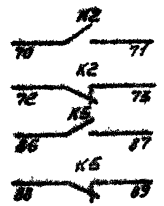 K2
70 71
K2
72 73
K5
86 87
K5
88 89